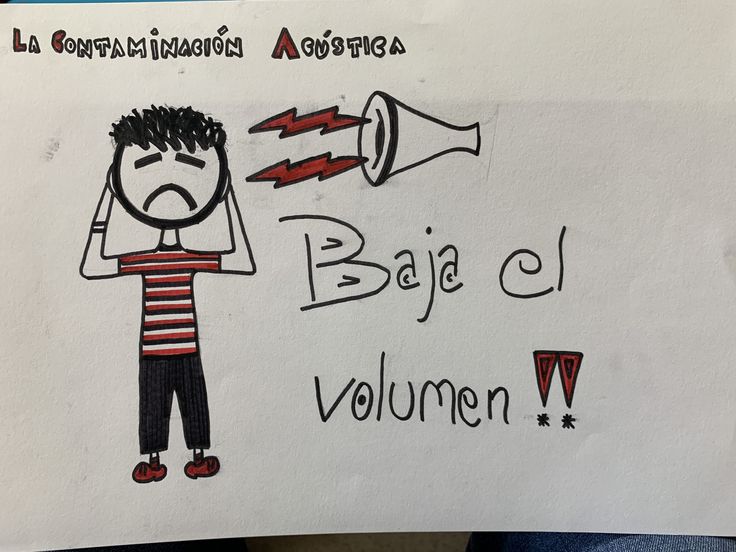 La Contaminación Acústica
Baja el
volumen!!